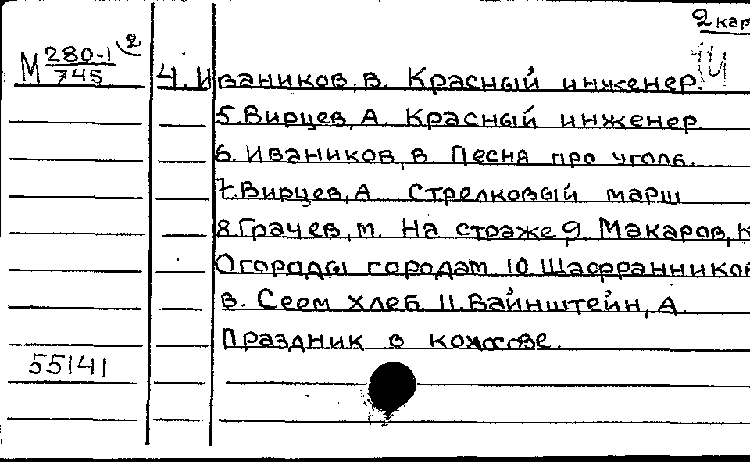 2 кар
М 280-1 2
745
4. Иваников, в. Красный инженер.
5. Вирцев, А Красный инженер
6. Иваников, в Песня про уголь.
7. Вирцев, А Стрелковый марш
8. Грачев, м. На страже 9. Макаров, К
Огороды городам 10. Шафранников
в. Сеем хлеб 11. Вайнштейн, А.
Праздник в
55141